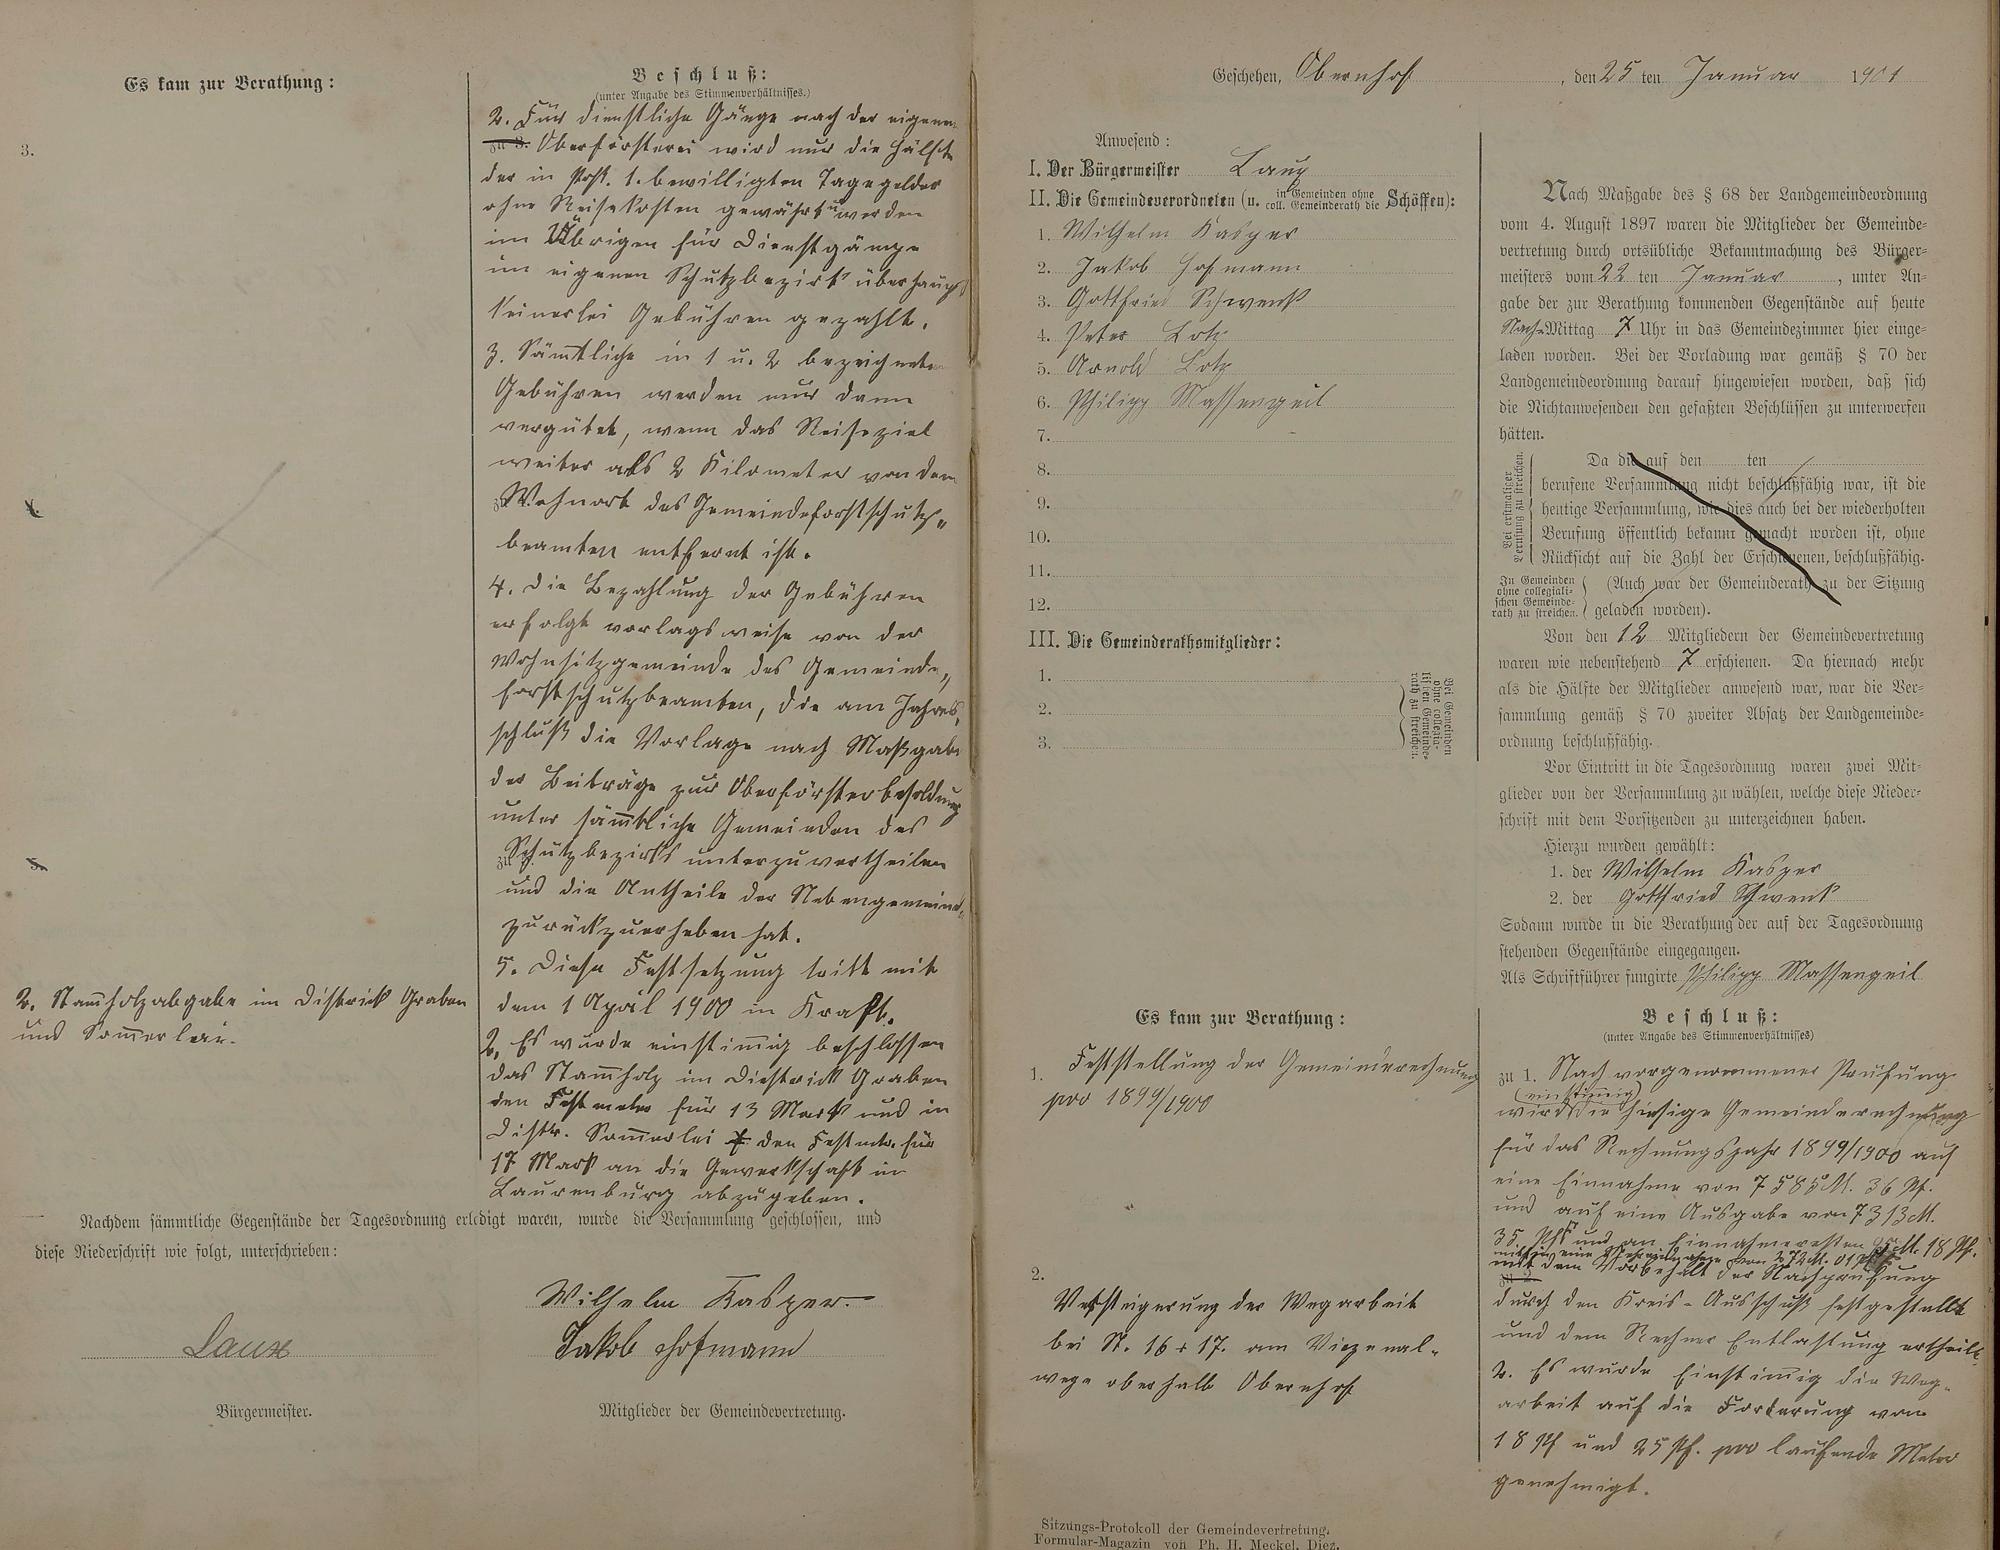 Es kam zur Berathung:
3.
2. Stam̄holzabgabe im District Graben
und Som̄erlei.
Beschluß:
(unter Angabe des Stimmenverhältnisses.)
2. Für dienstliche Gänge nach der eigenen
zu 3. Oberförsterei wird nur die Hälfte
der in Pos. 1. bewilligten Tagegelder
ohne Reisekosten gewährt u werden
im Übrigen für Dienstgänge
im eigenen Schutzbezirk überhaupt
keinerlei Gebühren gezahlt.
3. Sämtliche in 1 u. 2 bezeichneten
Gebühren werden nur dann
vergütet, wenn das Reiseziel
weiter als 2 Kilometer von dem
Wohnort des Gemeindeforstschutz„
beamten entfernt ist.
4. Die Bezahlung der Gebühren
erfolgt vorlagsweise von der
Wohnsitzgemeinde des Gemeinde„
forstschutzbeamten, die am Jahres„
schluß die Vorlage nach Maßgabe
der Beiträge zur Oberförsterbesoldung
unter säm̄tliche Gemeinden des
Schutzbezirks unterzuvertheilen
und die Antheile der Nebengemeind.
zurückzuerheben hat.
5. Diese Festsetzung tritt mit
dem 1 April 1900 in Kraft.
2. Es wurde einstim̄ig beschlossen
das Stam̄holz im Diestrick Graben
den Festmeter für 13 Mark und in
Distr. Som̄erlei den Festmtr. für
17 Mark an die Gewerkschaft in
Laurenburg abzugeben.
Nachdem sämmtliche Gegenstände der Tagesordnung erledigt waren, wurde die Versammlung geschlossen, und
diese Niederschrift wie folgt, unterschrieben:
Wilhelm Kasper.
Laux
Jakob Hofmann
Bürgermeister.
Mitglieder der Gemeindevertretung.
Geschehen, Obernhof, den 25 ten Januar 1901
Anwesend:
I. Der Bürgermeister Laux
II. Die Gemeindeverordneten (u. in Gemeinden ohne coll. Gemeinderath die Schöffen):
1. Wilhelm Kasper
2. Jakob Hofmann
3. Gottfried Schwenk
4. Peter Lotz
5. Arnold Lotz
6. Philipp Massengeil
7.
8.
9.
10.
11.
12.
III. Die Gemeinderathsmitglieder:
1.
2.
3.
Bei Gemeinden
ohne collegia-
lischen Gemeinde-
rath zu streichen.
Nach Maßgabe des § 68 der Landgemeindeordnung
vom 4. August 1897 waren die Mitglieder der Gemeinde-
vertretung durch ortsübliche Bekanntmachung des Bürger-
meisters vom 22 ten Januar, unter An-
gabe der zur Berathung kommenden Gegenstände auf heute
Nach-Mittag 7 Uhr in das Gemeindezimmer hier einge-
laden worden. Bei der Vorladung war gemäß § 70 der
Landgemeindeordnung darauf hingewiesen worden, daß sich
die Nichtanwesenden den gefaßten Beschlüssen zu unterwerfen
hätten.
Bei erstmaliger
Berufung zu streichen.
Da die auf den ten
berufene Versammlung nicht beschlußfähig war, ist die
heutige Versammlung, wie dies auch bei der wiederholten
Berufung öffentlich bekannt gemacht worden ist, ohne
Rücksicht auf die Zahl der Erschienenen, beschlußfähig.
In Gemeinden
ohne collegiali-
schen Gemeinde-
rath zu streichen.
(Auch war der Gemeinderath zu der Sitzung
geladen worden).
Von den 12 Mitgliedern der Gemeindevertretung
waren wie nebenstehend 7 erschienen. Da hiernach mehr
als die Hälfte der Mitglieder anwesend war, war die Ver-
sammlung gemäß § 70 zweiter Absatz der Landgemeinde-
ordnung beschlußfähig.
Vor Eintritt in die Tagesordnung waren zwei Mit-
glieder von der Versammlung zu wählen, welche diese Nieder-
schrift mit dem Vorsitzenden zu unterzeichnen haben.
Hierzu wurden gewählt:
1. der Wilhelm Kasper
2. der Gottfried Schwenk
Sodann wurde in die Berathung der auf der Tagesordnung
stehenden Gegenstände eingegangen.
Als Schriftführer fungirte Philipp Massengeil
Es kam zur Berathung:
1. Feststellung der Gemeinderechnung
pro 1899/1900
2.
Versteigerung der Wegarbeit
bei St. 16 + 17. am Vicenal-
wege oberhalb Obernhof
Beschluß:
(unter Angabe des Stimmenverhältnisses)
zu 1. Nach vorgenommener Prüfung
(einstim̄ig)
wird die hiesige Gemeinderechnung
für das Rechnungsjahr 1899/1900 auf
eine Einnahme von 7585 M. 36 Pf.
und auf eine Ausgabe von 7313 M.
35 Pf und an Einnahmeresten M. 18 Pf.
mithin eine Mehreinnahme von 272 M. 01 Pf
mit dem Vorbehalt der Nachprüfung
durch den Kreis-Ausschuß festgestellt
und dem Rechner Entlastung ertheilt.
2. Es wurde Einstim̄ig die Weg-
arbeit auf die Forderung von
18 Pf und 25 Pf. pro laufende Meter
genehmigt.
Sitzungs-Protokoll der Gemeindevertretung.
Formular-Magazin von Ph. H. Meckel, Diez.